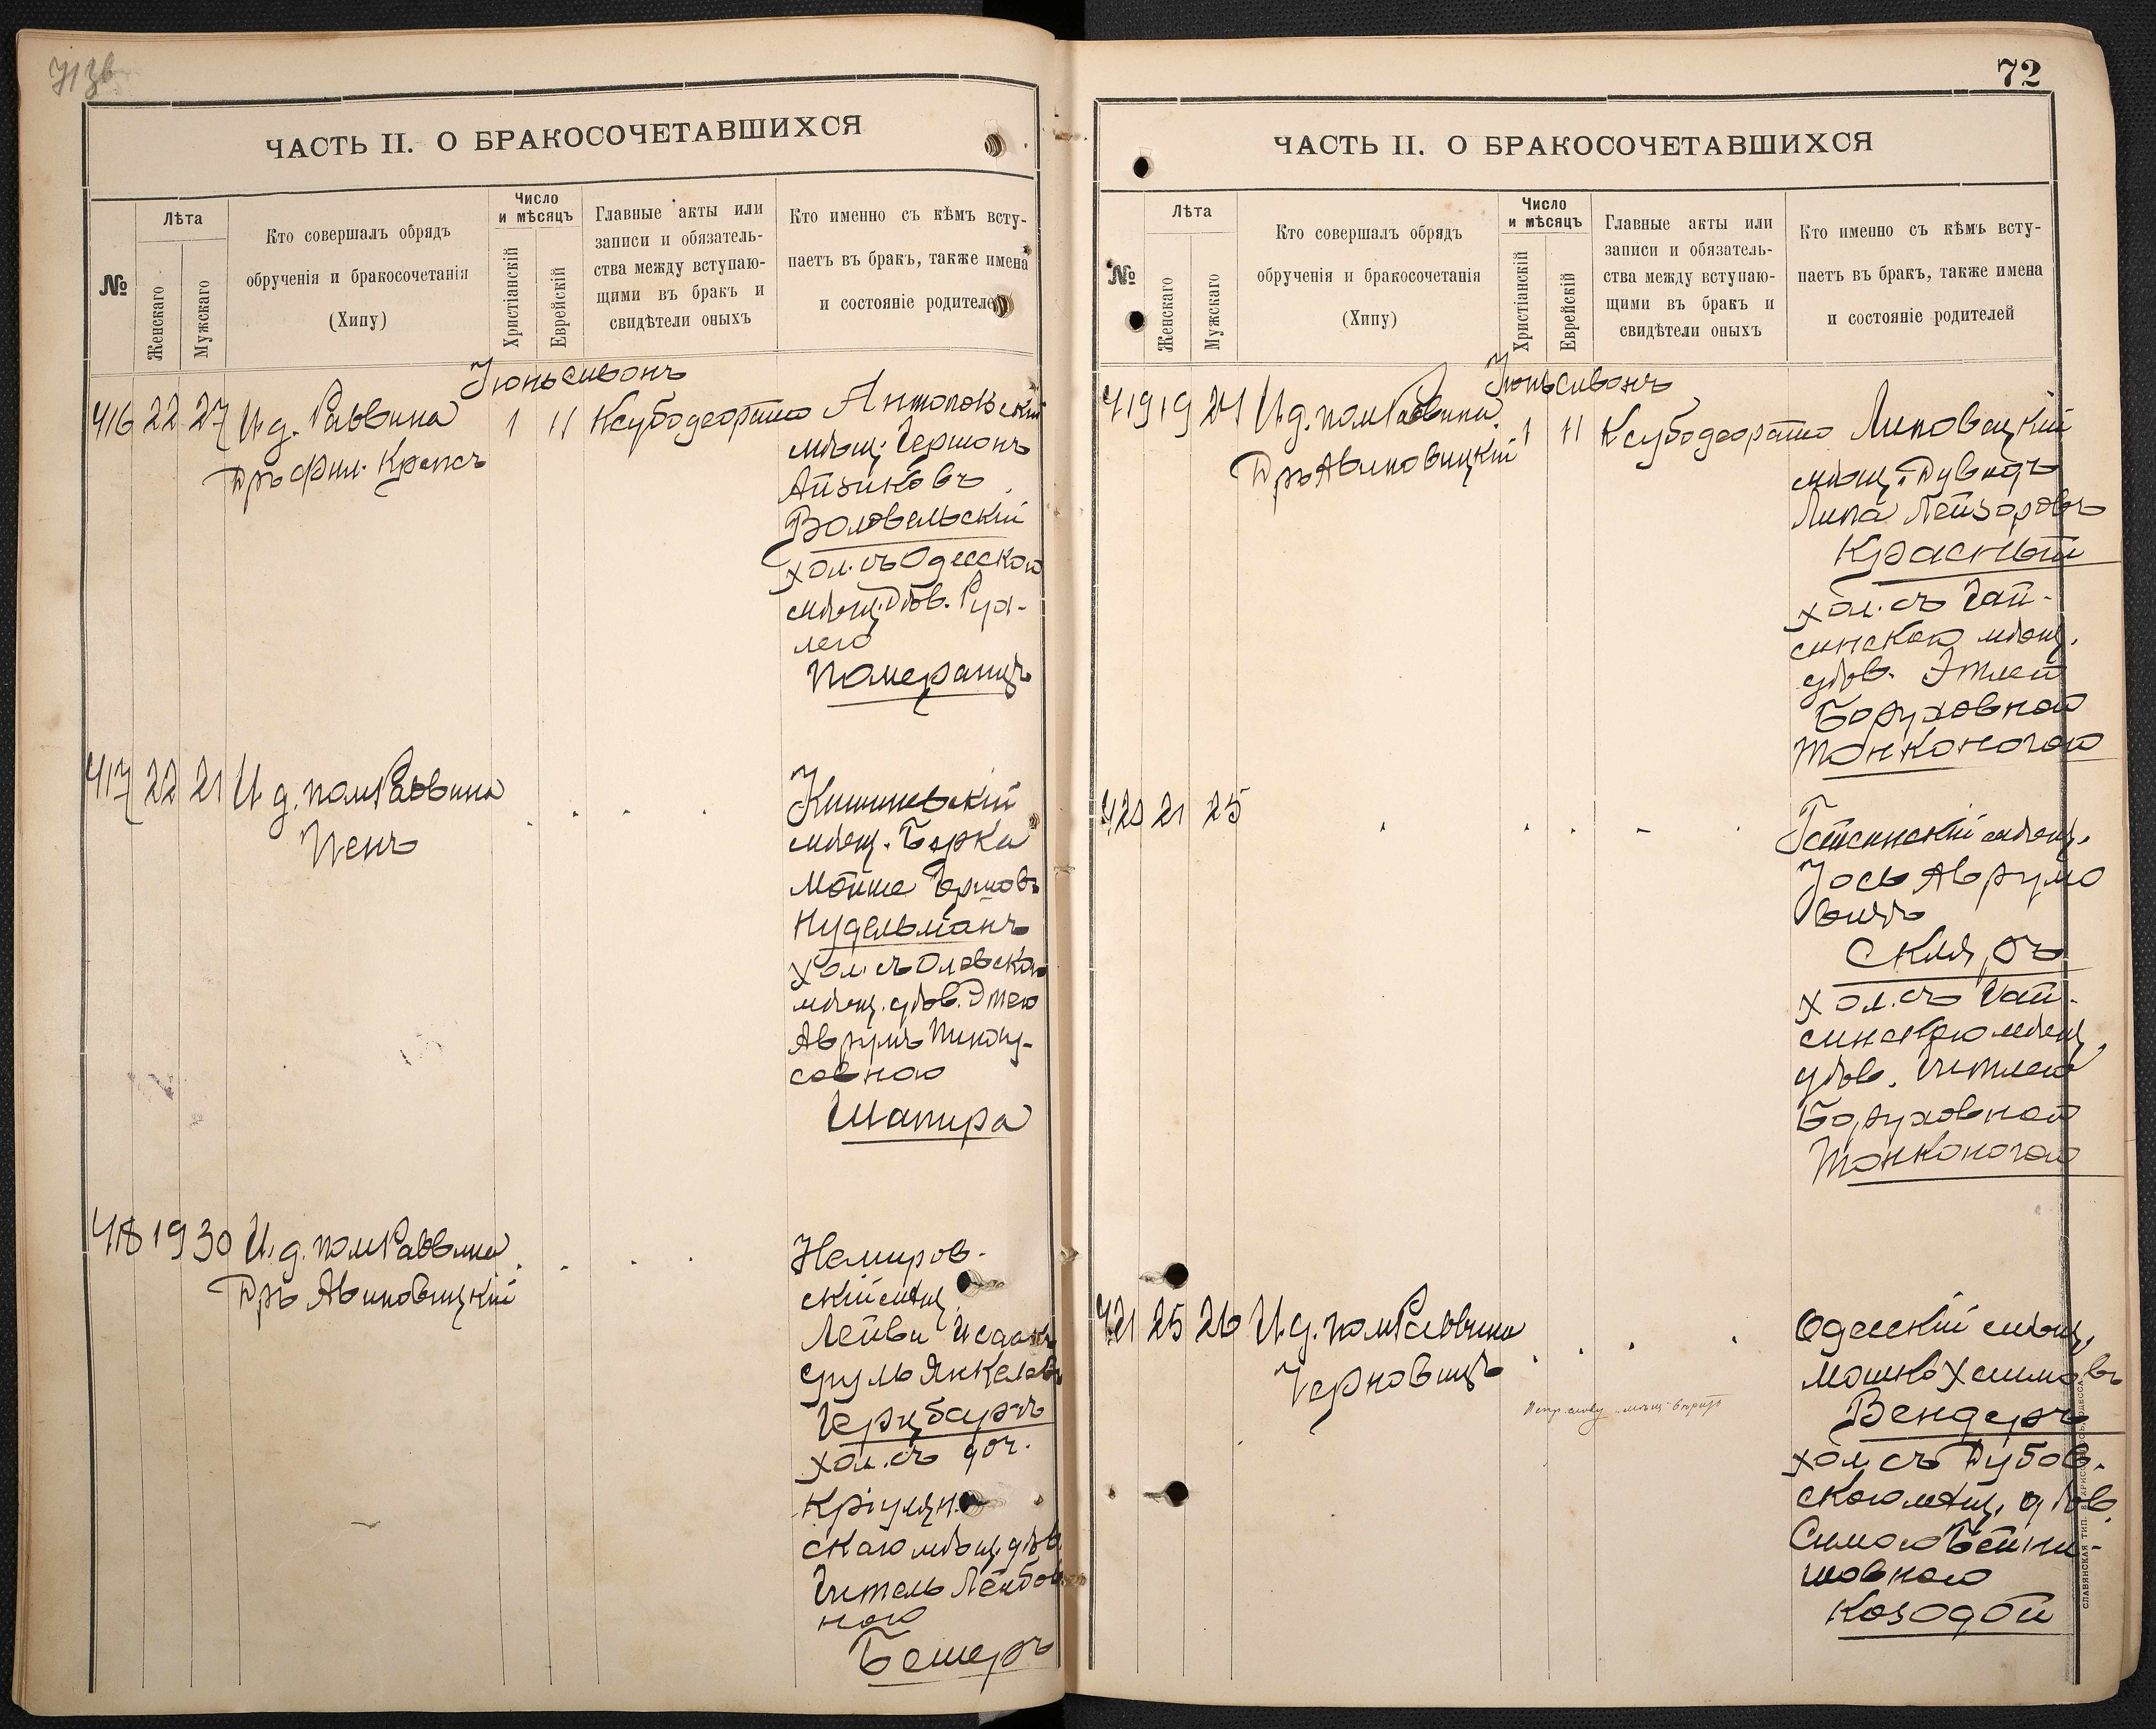 71 зв
ЧАСТЬ II. О БРАКОСОЧЕТАВШИХСЯ
№
Лѣта
Женскаго
Мужскаго
Кто совершалъ обрядъ
обрученія и бракосочетанія
(Хипу)
Число
и мѣсяцъ
Христіанскій
Еврейскій
Главные акты или
записи и обязатель-
ства между вступаю-
щими въ бракъ и
свидѣтели оныхъ
Кто именно съ кѣмъ всту-
паетъ въ бракъ, также имена
и состояніе родителей
Іюнь сивонъ
416 22 27 И.д. Раввина 1 11
Дръ Фил. Крепсъ
мѣщ. Гершонъ
Айзиковъ
Воловельскій
хол. съ Одесскою
мѣщ. дѣв. Рух-
лею
Померанцъ
417 22 21 И.д. пом Раввина
Пенъ
Кишиневскій
мѣщ. Берко
Мойше
Нудельманъ
хол. съ
мѣщ. дѣв. Этею
Аврумъ Пинху-
совною
Шапира
418 19 30 И.д. пом Раввина
Дръ Авиновицкій
Немиров-
скій мѣщ.
Лейви Исаакъ
Сруль Янкелевъ
Герцбергъ
хол. съ доч.
Кріулян
скаго мѣщ. дѣв.
Гитель Лейбов
ною
Бешеръ
72
ЧАСТЬ II. О БРАКОСОЧЕТАВШИХСЯ
№
Лѣта
Женскаго
Мужскаго
Кто совершалъ обрядъ
обрученія и бракосочетанія
(Хипу)
Число
и мѣсяцъ
Христіанскій
Еврейскій
Главные акты или
записи и обязатель-
ства между вступаю-
щими въ бракъ и
свидѣтели оныхъ
Кто именно съ кѣмъ всту-
паетъ въ бракъ, также имена
и состояніе родителей
Іюнь сивонъ
419 19 21 И.д. пом Раввина 1 11 Липовецкій
Дръ Авиновицкій
мѣщ. Дувидъ
Липа Лейзоровъ
Красный
хол. съ Гай-
синскою мѣщ.
дѣв. Этлей
Боруховной
Тонконогою
420 21 25
Гайсинскій мѣщ.
Іось Аврумо
вичъ
Скляръ
хол. съ Гай-
синскою мѣщ.
дѣв. Гитлей
Боруховной
Тонконогою
421 25 26 И.д. пом Раввина
Черновицъ
Одесскій мѣщ.
Мошко Хаимовъ
Вендеръ
хол. съ Дубов-
скою мѣщ. дѣв.
Симою Бейни-
шовною
Козодой
СЛАВЯНСКАЯ ТИП.